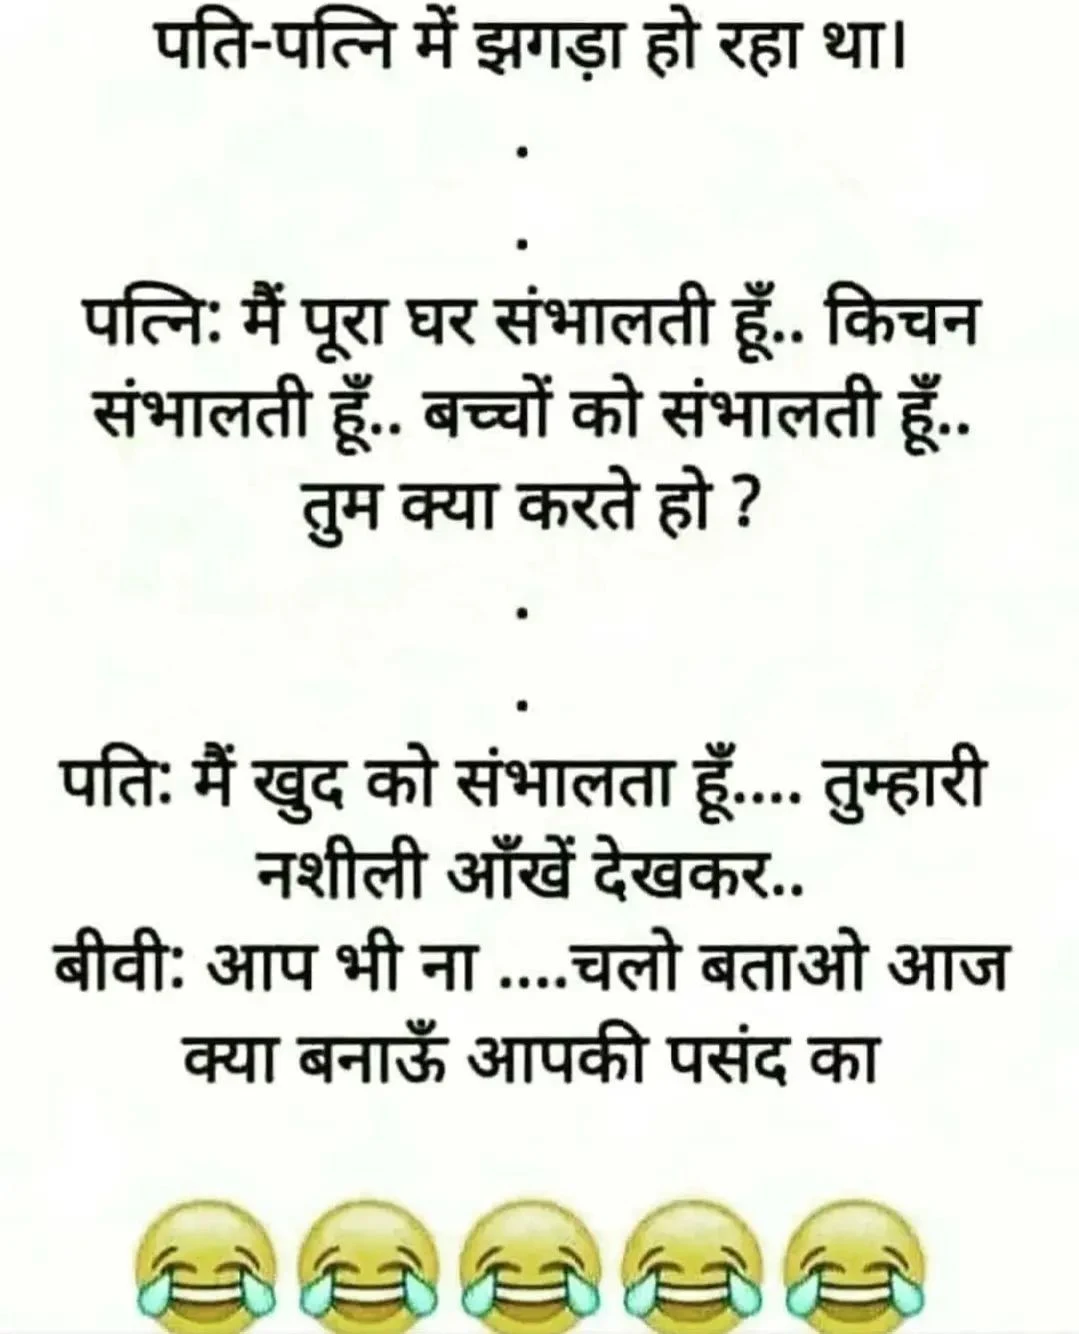 पति-पत्नि में झगड़ा हो रहा था।
.
.
पत्नि: मैं पूरा घर संभालती हूँ.. किचन
संभालती हूँ.. बच्चों को संभालती हूँ..
तुम क्या करते हो ?
.
.
पति: मैं खुद को संभालता हूँ.... तुम्हारी
नशीली आँखें देखकर..
बीवी: आप भी ना ....चलो बताओ आज
क्या बनाऊँ आपकी पसंद का